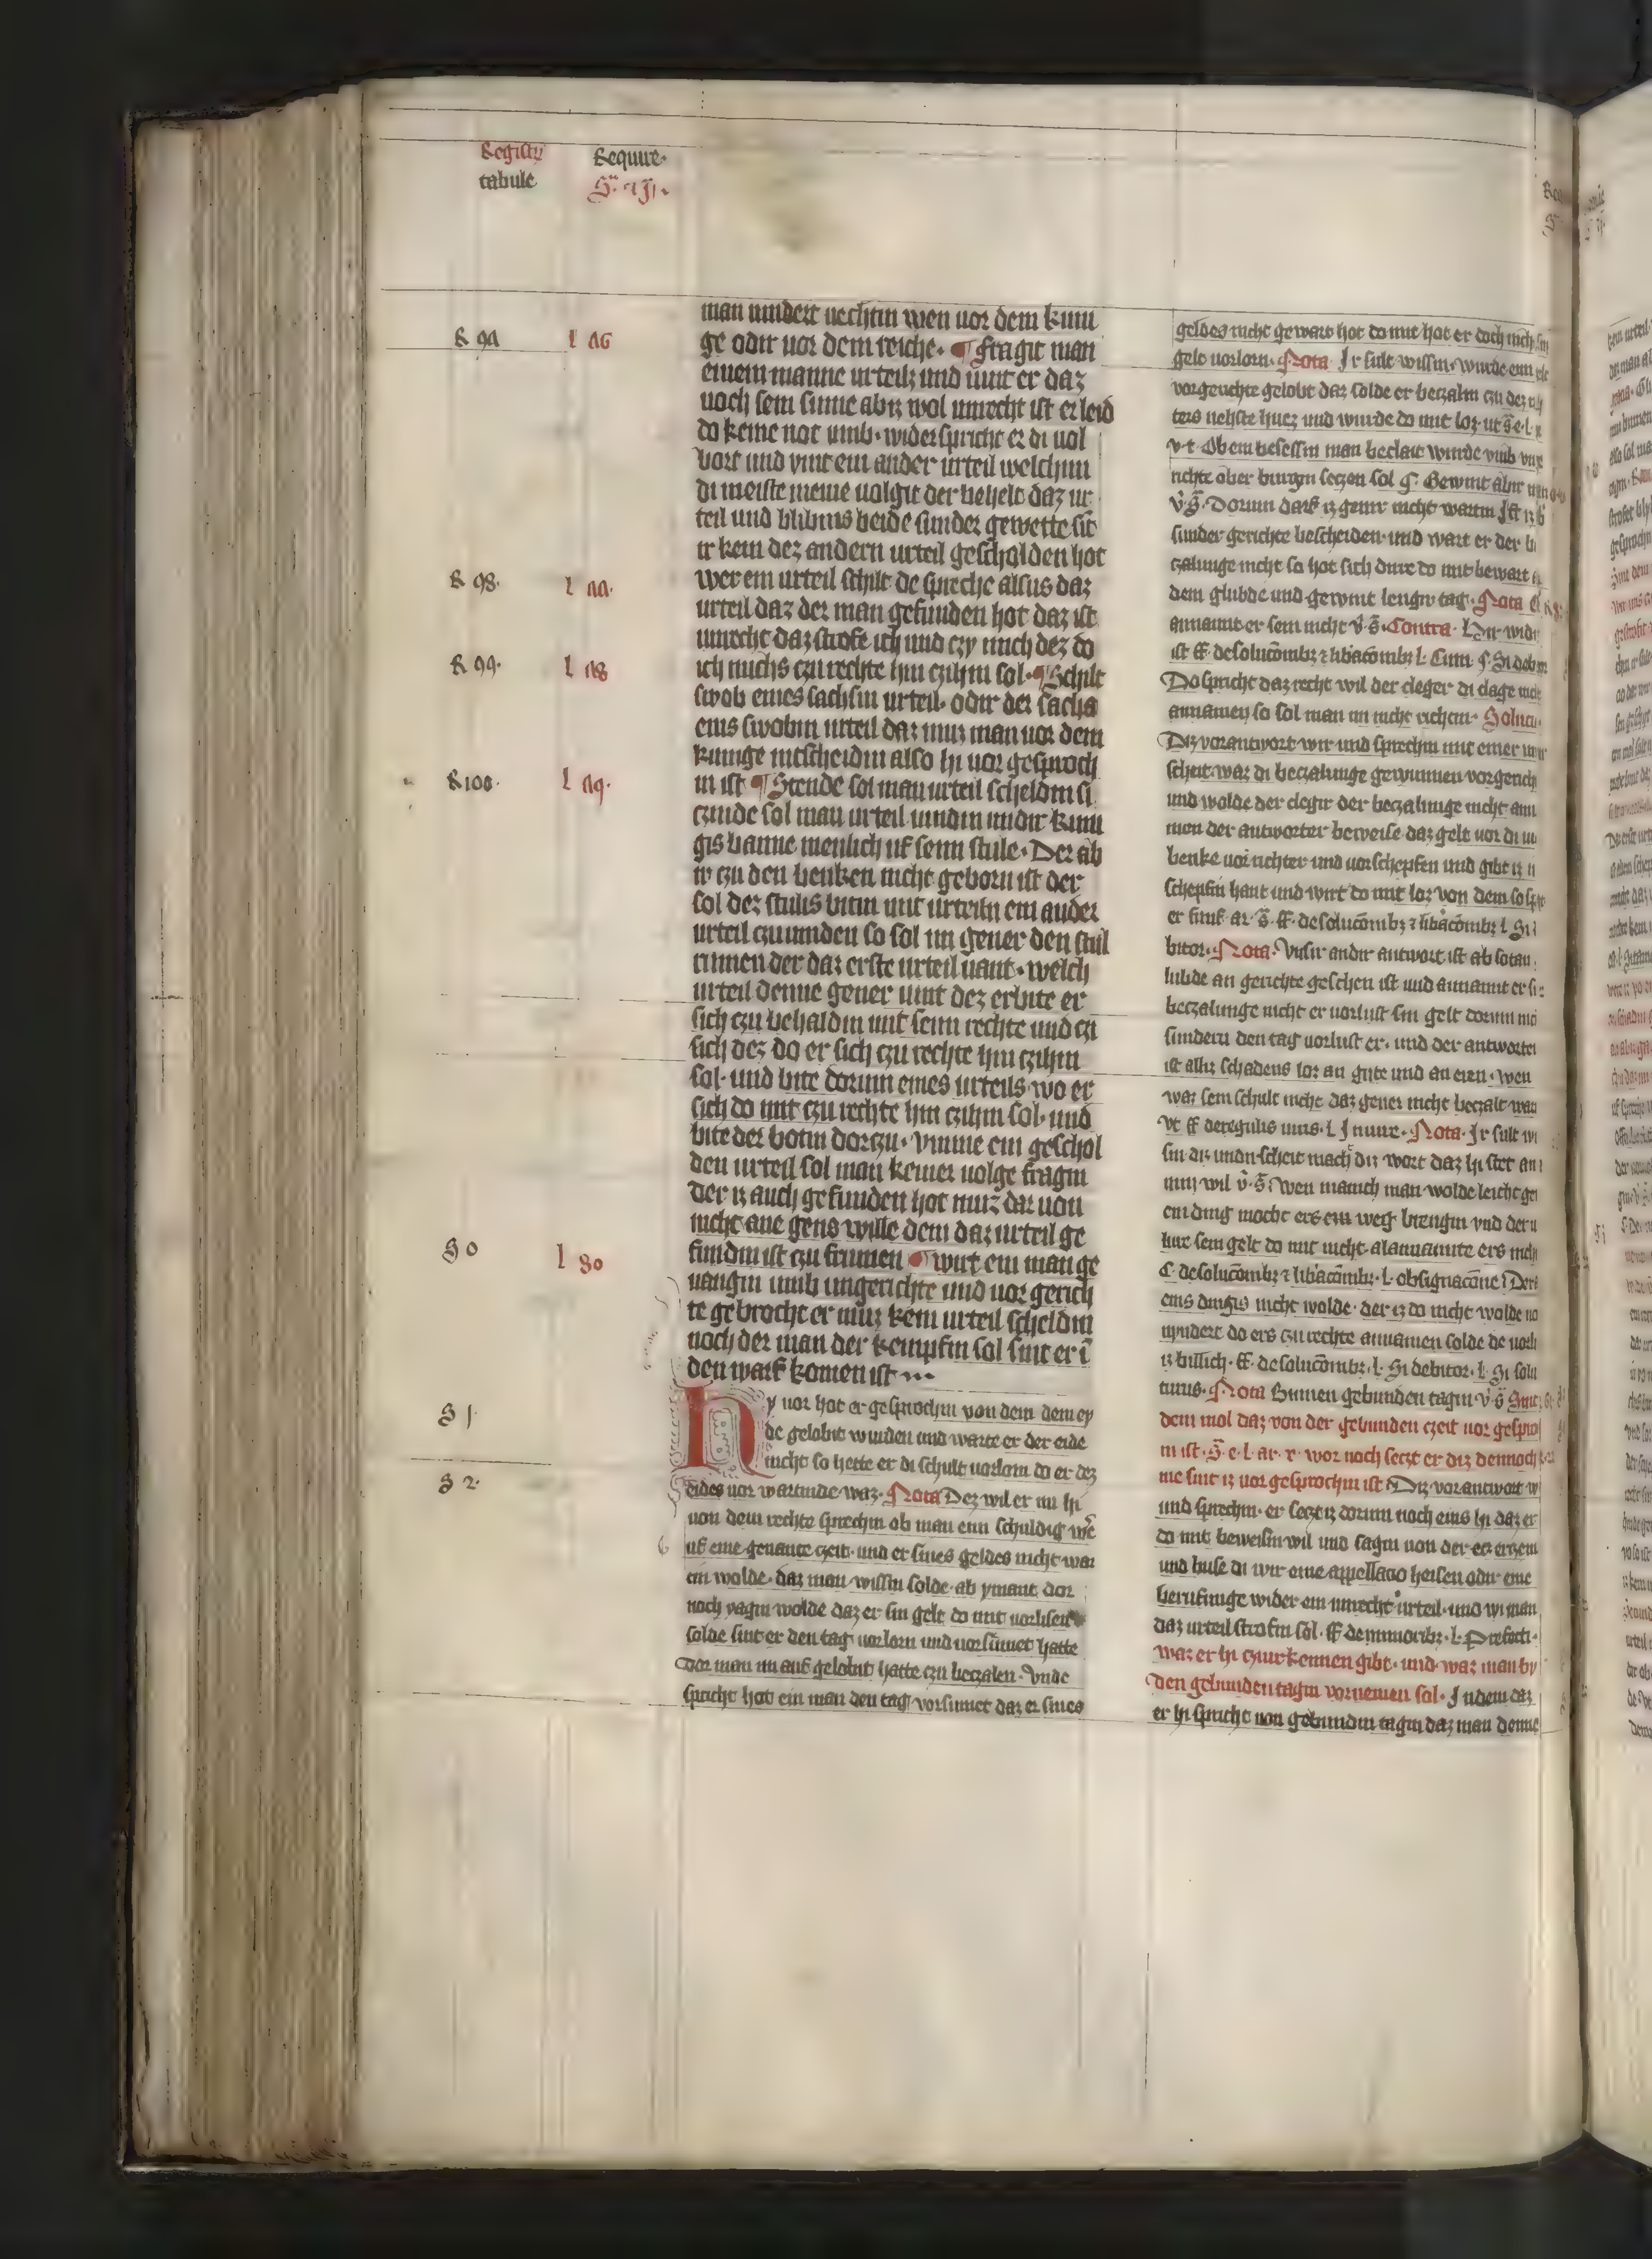 Registrum
tabule
Require
man nindert vechtin wen vor dem kuni
ge odir vor dem reiche. ¶ Fragit man
einem manne urteilz und vint er daz
noch sem sinne abiz wol unrecht ist er leid
do keine not umb. widerspricht er di vol
bort und vint ein ander urteil welchim
di meiste menie volgit der behelt daz ur
teil und blibins beide sunder gewette sit
ir kein dez andern urteil gescholden hot
wer ein urteil schilt de spreche alsus daz
urteil daz der man gefunden hot daz ist
unrecht daz strofe ich und czy mich dez do
ich michs czu rechte hin czihin sol. ¶ Schilt
swob eines sachsin urteil. odir der sachs
eins swobin urteil daz muz man vor dem
kunige intscheidin also hi vor gesproch
in ist ¶ Stende sol man urteil scheldin si
czinde sol man urteil vindin undir kuni
gis banne menlich uf senn stule. Der ab
ir czu den benken nicht geborn ist der
sol dez stulis bitin mit urteiln ein ander
urteil czu vinden so sol im gener den stul
rumen der daz erste urteil vant. welch
urteil denne gener vint dez erbite er
sich czu behaldin mit senn rechte und czi
sich dez do er sich czu rechte hin czihin
sol. und bite dorum eines urteils. wo er
sich do mit czu rechte hin czihin sol. und
bite der botin dorczu. Umme ein geschol
den urteil sol man keiner volge fragin
Der iz auch gefunden hot muz dar von
nicht ane gens wille dem daz urteil ge
fundin ist czu frumen ¶ wirt ein man ge
vangin umb ungerichte und vor gerich
te gebrocht er muz kein urteil scheldin
noch der man der kempfin sol sint er i
den warf komen ist
Hy vor hot er gesprochin von dem dem ey
de gelobit wurden und warte er der eide
nicht so hette er di schult vorlorn do er dez
eides vor wartinde waz. Nota Dez wil er nu hi
von dem rechte sprechin ob man enn schuldig were
uf eine genante czeit. und er sines geldes nicht war
en wolde. daz man wissin solde. ab ymant dor
noch vagin wolde daz er sin gelt do mit vorlisen
solde sint er den tag vorlorn und vorsumet hatte
Dor man im auf gelobit hatte czu beczalen. Unde
spricht hot ein man den tag vorsumet daz er sines
geldes nicht gewart hot do mit hot er doch nicht sin
gelt vorlorn. Nota Ir sult wissin. wurde ein
vor gerichte gelobt daz solde er beczaln czu dez
ters nehste huez und wurde do mit loz. ut s. e. l.
Ob ein besessin man beclait wurde umb
richte ober burgin seczen sol §. Gewint abir
Dorum darf iz gener nicht wartin Ist iz
sunder gerichte bescheiden. und wart er der
czalunge nicht so hot sich dirre do mit bewart
dem glubde und gewint lengir tag. Nota
annamt er sem nicht v. s. Contra. Hir widir
ist ff. de solucōmbz ⁊ libācōmbz l. Cum. §. Si debi
Do spricht daz recht wil der cleger di clage nicht
annamen so sol man im nicht richten. Solucio.
Diz vorantwort wir und sprechin mit einer
scheit. war di beczalunge gewunnen vor gerich
und wolde der clegir der beczalunge nicht ann
men der antworter beweise daz gelt vor di
benke vor richter und vor schepfen und gibt iz
schepfin hant und wirt do mit loz von dem
er ff. de solucōmbz ⁊ libācōmbz l. Si
bitor. Nota. Unsir andir antwort ist ab sotan
lubde an gerichte geschen ist und annamt er
beczalunge nicht er vorlust sin gelt dorum
sundern den tag vorlust er. und der antworter
ist allir schadens loz an gute und an eren. wen
waz sem schult nicht daz gener nicht beczalt war
ut ff de regulis iuris. l. In iure. Nota. Ir sult wi
sin diz undirscheit mach diz wort daz hi stet an
wen manich man wolde leicht
ein ding mocht ers em weg brengin und der
lur sem gelt do mit nicht. al annamite ers nich
C. de solucōmbz ⁊ libācōmbz. l. obsignacōne Der
eins dingis nicht wolde. der iz do nicht wolde
nyndert do ers czu rechte annamen solde de vorli
iz billich. ff. de solucōmbz. l. Si debitor. l. Si solu
turus. Nota Binnen gebunden tagin v. s. Sint
dem mol daz von der gebunden czeit vor gespro
in ist. s. e. l. ar. r. wor noch seczt er diz dennoch
me sint iz vor gesprochin ist Diz vorantwort
und sprechin. er seczt iz dorum noch eins hi daz er
do mit beweisin wil und sagin von der
und buse di wir eine appellacio heisen odir eine
berufinge wider ein unrecht urteil. und wi man
daz urteil strofin sol. ff de minoribz. l. Prefecti.
waz er hi czurkennen gibt. und waz man by
den gebunden tagin vornemen sol. In dem daz
er hi spricht von gebundin tagin daz man denne
R 94 l 46
R 98. l 44.
R 99. l 48
R 100. l 49.
S 0 l 50
S 1.
S 2.